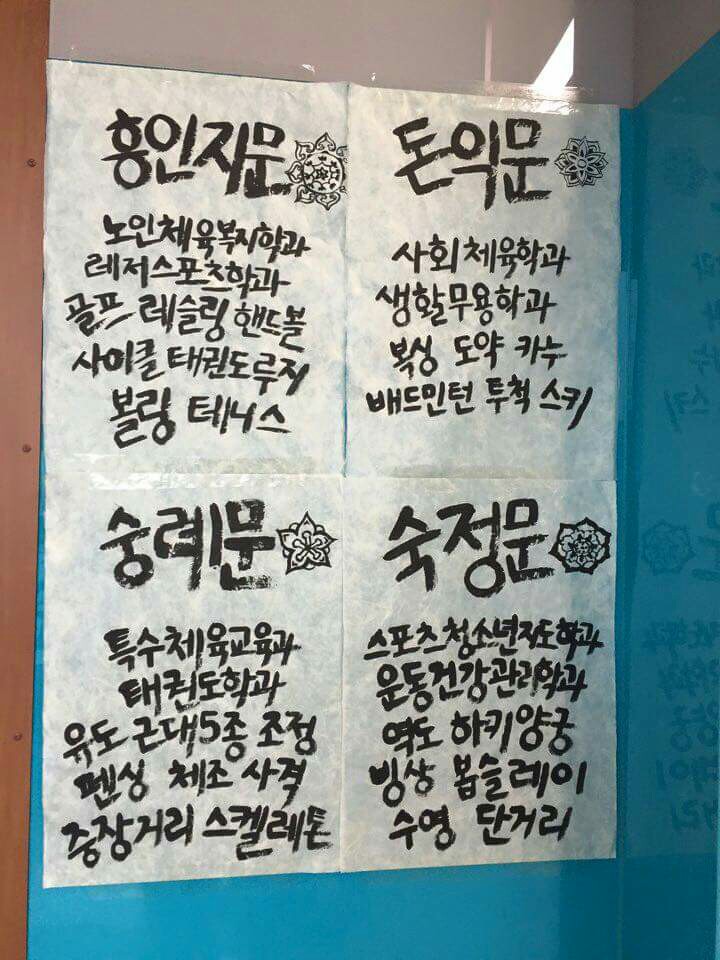 흥인지문
노인체육복지학과
레저스포츠학과
골프 레슬링 핸드볼
사이클 태권도 루지
볼링 테니스
돈의문
사회체육학과
생활무용학과
복싱 도약 카누
배드민턴 투척 스키
숭례문
특수체육교육과
태권도학과
유도 근대5종 조정
펜싱 체조 사격
중장거리 스켈레톤
숙정문
스포츠청소년지도학과
운동건강관리학과
역도 하키 양궁
빙상 봅슬레이
수영 단거리